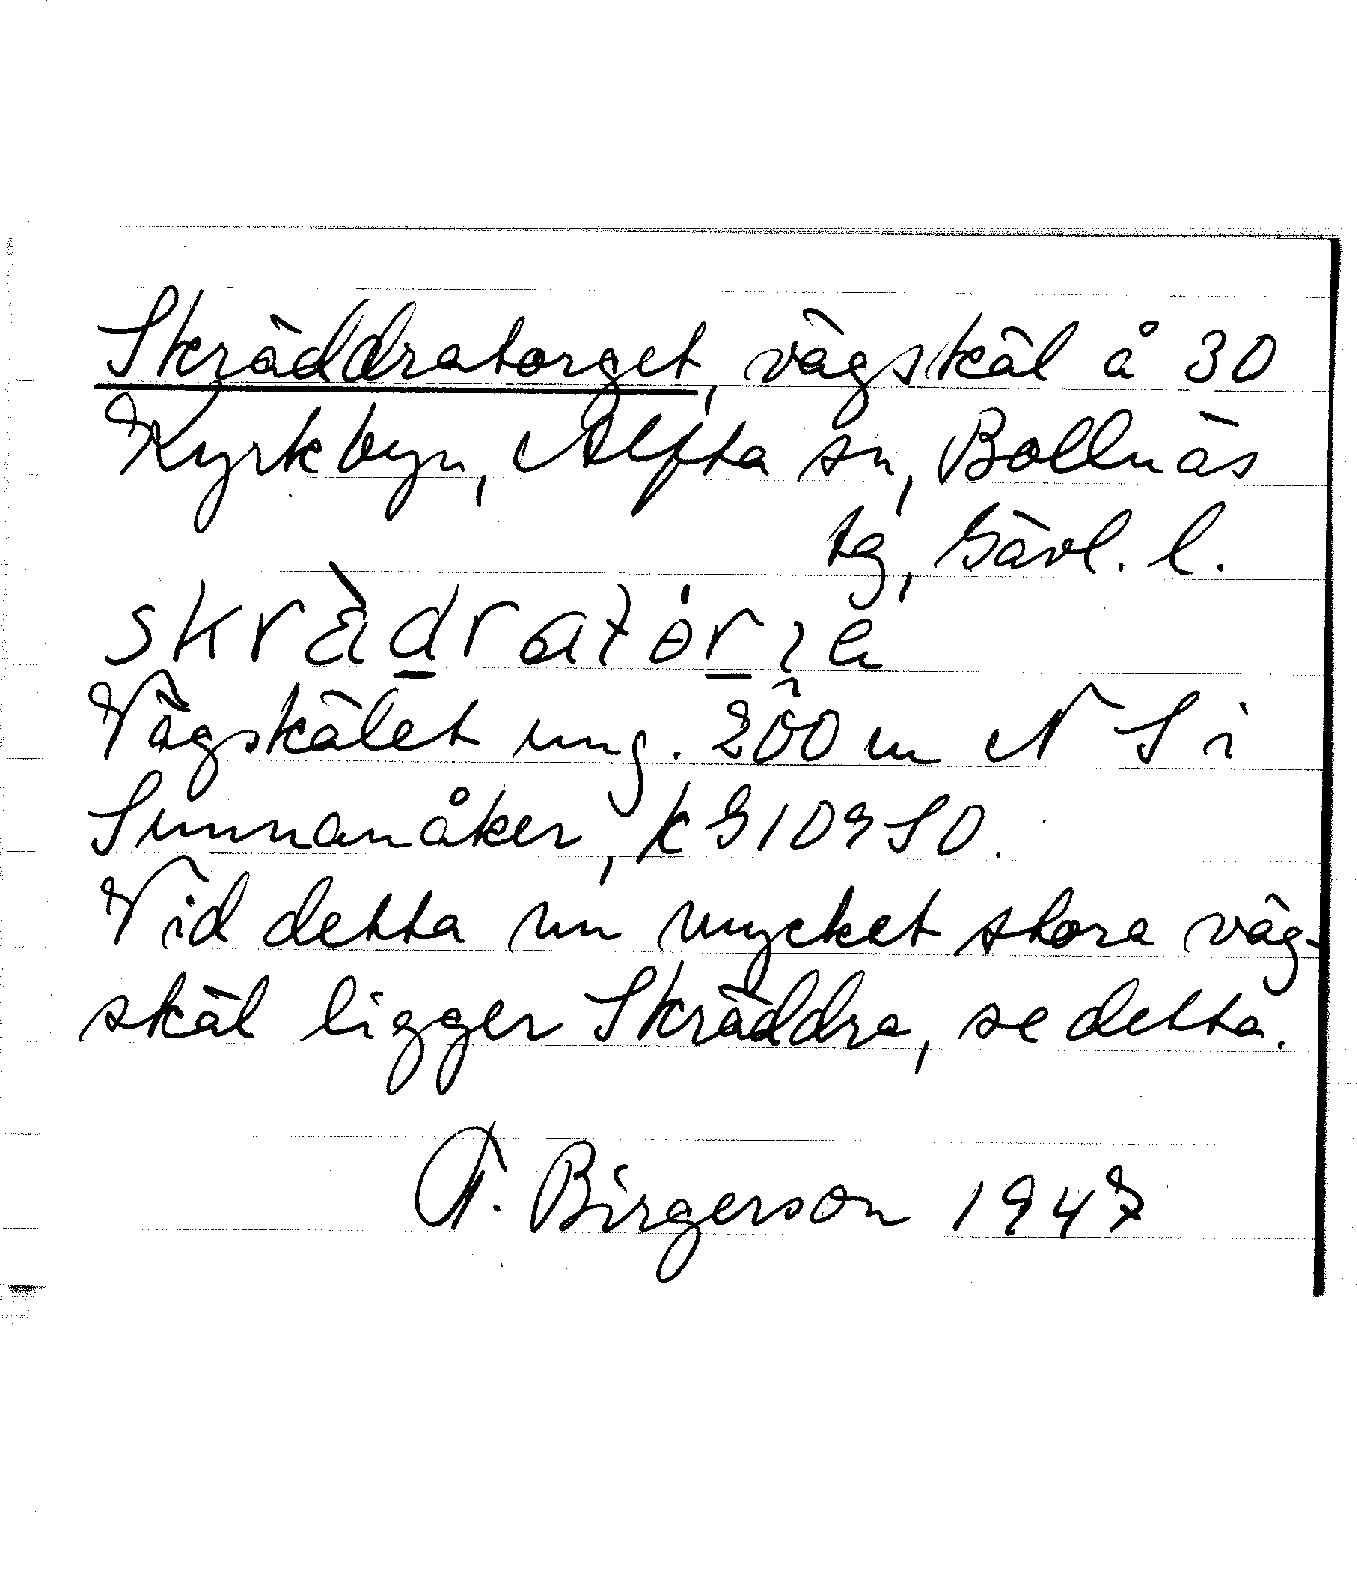 Skräddratorget, vägskäl å 30
Kyrkbyn, Alfta sn, Bollnäs
tg, Gävl. l.
Vägskälet ung. 200 m N S i
Sunnanåker, k G10g SO.
Vid detta nu mycket stora väg-
skäl ligger Skräddra, se detta.
F. Birgerson 1947